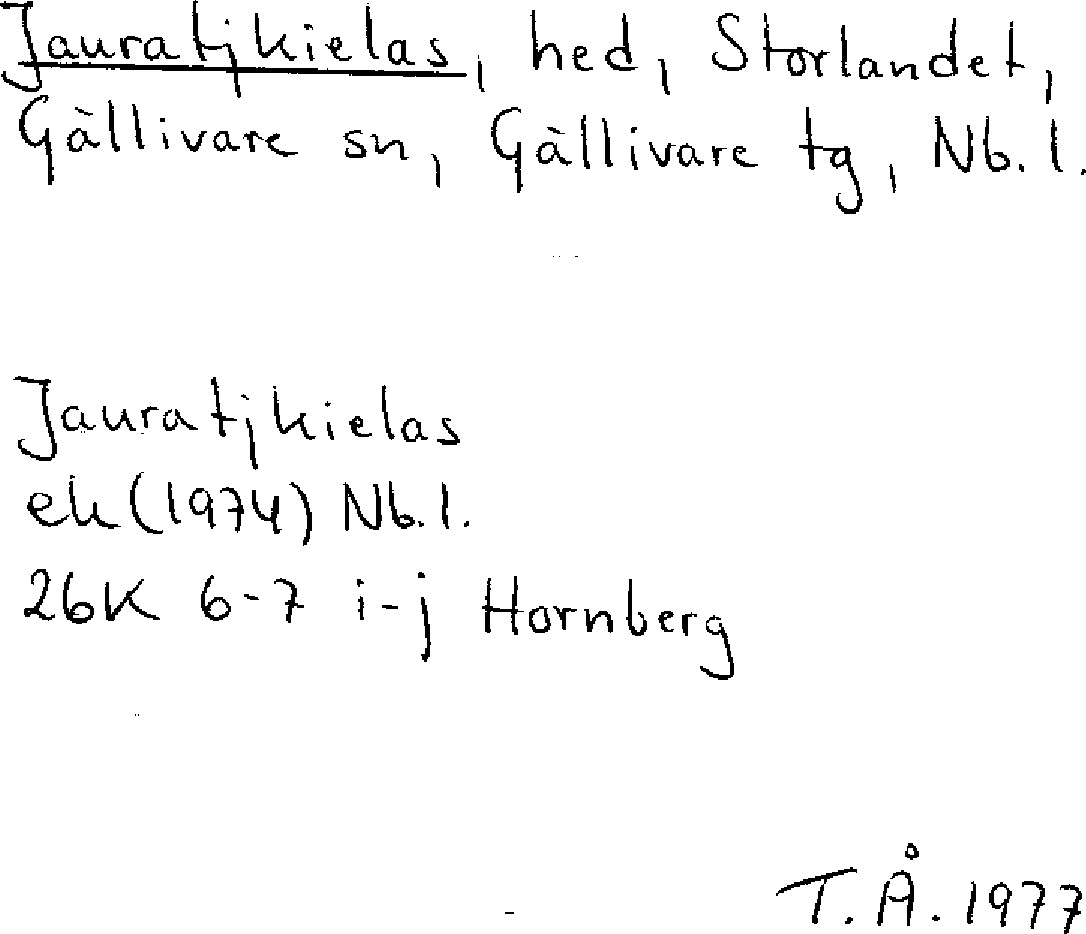 Jauratjkielas, hed, Storlandet,
Gällivare sn, Gällivare tg, Nb. l.
Jauratjkielas
ek (1974) Nb. l.
26K 6-7 i-j Hornberg
T. Å. 1977